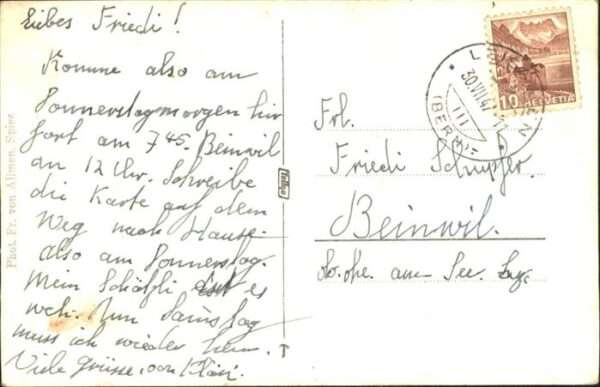 Liebes Friedi!
Komme also am
Donnerstagmorgen hier
fort am 7 45. Beinwil
an 12 Uhr. Schreibe
die Karte auf dem
Weg nach Hause.
also am Donnerstag.
Mein Schätzli es
weh. Am Samstag
muss ich wieder heim.
Viele Grüsse. von Kläri.
Phot. Fr. von Allmen, Spiez
Frl.
Friedi
Beinwil.
am See.
10 HELVETIA
30.VII.4
III
(BERN)